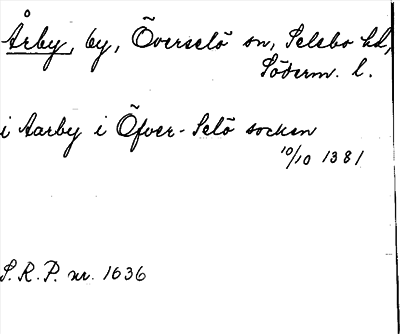 Årby, by, Överselö sn, Selebo hd,
Söderm. l.
i Aarby i Öfver-Selö socken
10/10 1381
S.R.P. nr. 1636